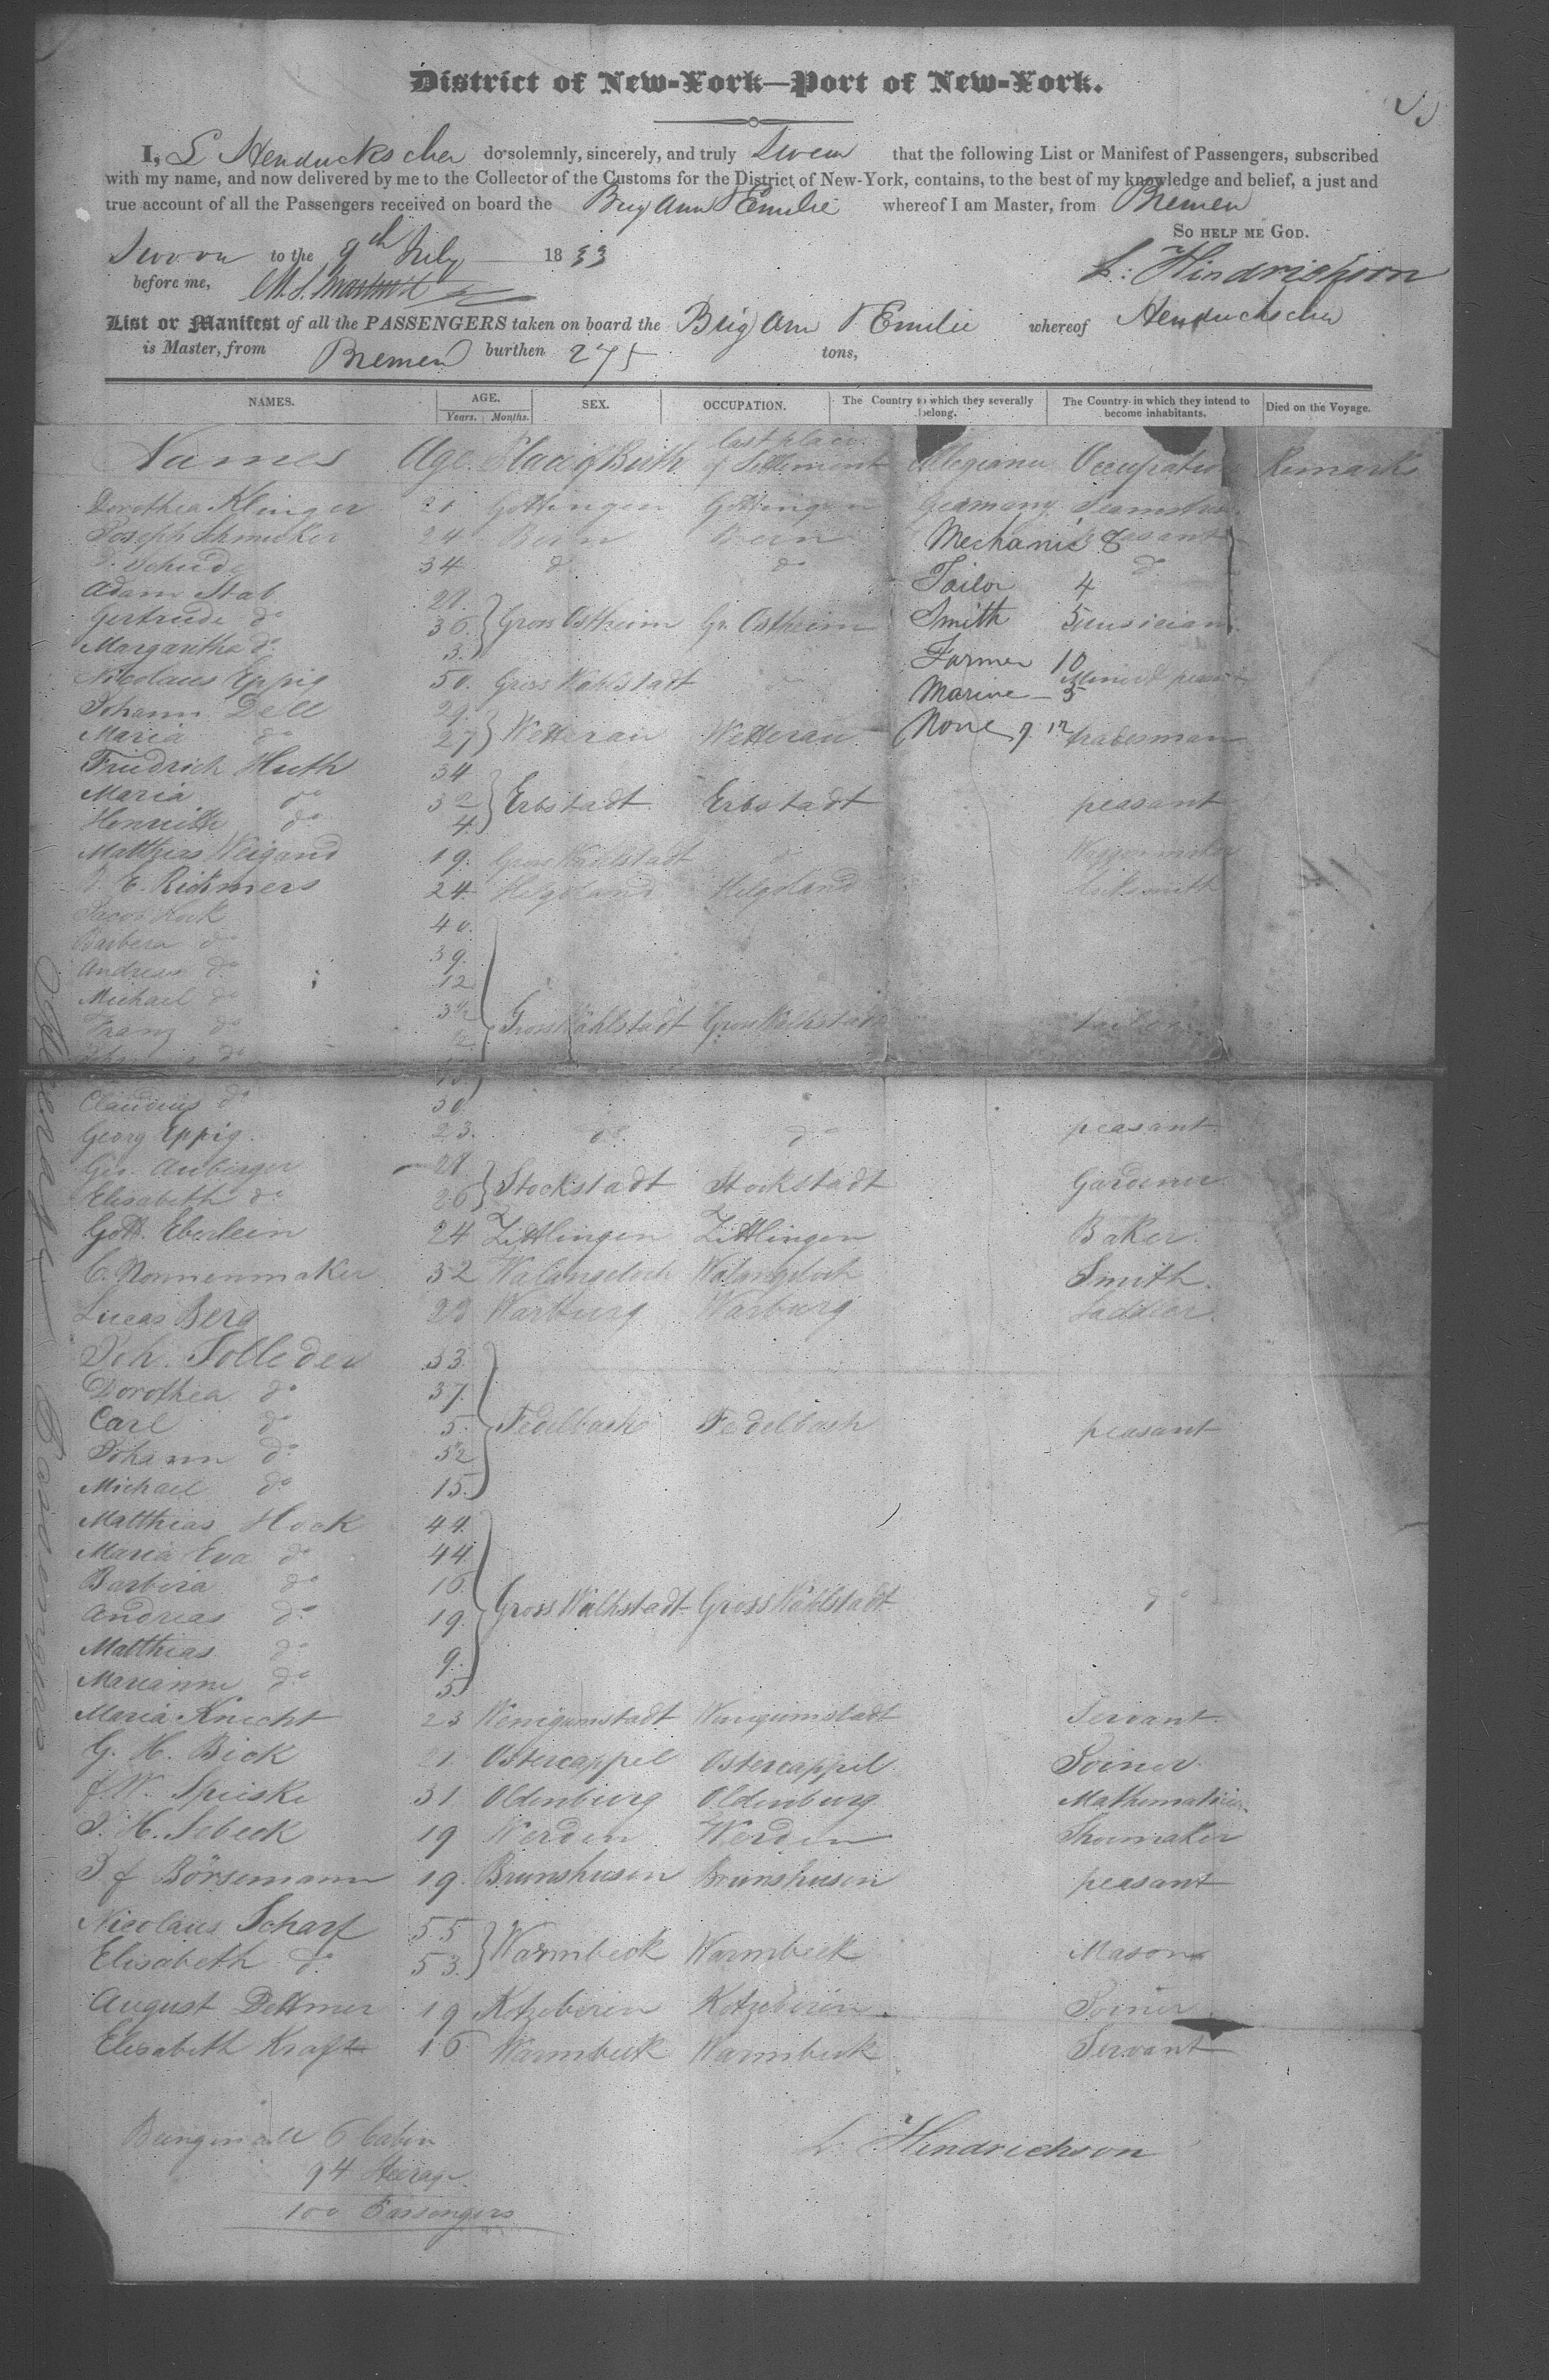 District of New-York—Port of New-York.
I, L Henduckscher do solemnly, sincerely, and truly Swear that the following List or Manifest of Passengers, subscribed
with my name, and now delivered by me to the Collector of the Customs for the District of New-York, contains, to the best of my knowledge and belief, a just and
true account of all the Passengers received on board the Brig Ann & Emilie whereof I am Master, from Bremen
So help me God.
Sworn to the 9th July 1833
L: Hindrichson
before me,
List or Manifest of all the PASSENGERS taken on board the Brig Ann & Emilie whereof Henduchscher
is Master, from Bremen burthen 275 tons,
NAMES. AGE. Years. Months. SEX. OCCUPATION. The Country to which they severally belong. The Country in which they intend to become inhabitants. Died on the Voyage.
Names Age. Place of Birth last place of Settlement Allegiance Occupation Remarks
Dorothea Klinger 21 Gottingen Gottingen Germany Seamstress
Joseph Schmucker 24 Bern Bern Mechanic 8 peasant
Schude 34 do do do
Adam Stab 28. Tailor 4
Gertrude do 36. Gross Ostheim Gr. Ostheim Smith 5 musician
Margaritha do 3. Farmer 10
Nicolaus Eppig 50. Gross Wahlstadt do Marine 5 peasant
Johann Dell 29.
Maria do 27 Wetterau Wetterau None tradesman
Friedrich Huth 34
Maria do Erbstadt Erbstadt peasant
do 4.
Matthias Weigand 19. Gross Wahlstadt do
E. Rickmers 24. Helgoland Helgoland locksmith
Jacob Hock 40.
Barbera do 39.
Andreas do 12
Michael do
Franz do Gross Wahlstadt Gross Wahlstadt tailor
do
Claudius do 30.
Georg Eppig. 23. do do peasant
Geo. Auberger 28.
Elisabeth do 26 Stockstadt Stockstadt Gardener.
Gott. Eberlein 24 Zittlingen Zittlingen Baker.
C. Nonnenmaker 32 Walangeloch Walangeloch Smith.
Lucas Berg 22 Wartburg Warburg Saddler.
Joh. Tolleder 33
Dorothea do 37.
Carl do 5. Fedelbach Fedelbach peasant
Johann do
Michael do 15.
Matthias Hock 44.
Maria Eva do 44.
Barbera do 16
Andreas do 19. Gross Walhstadt Gross Wahlstadt do
Matthias do 9.
Marianne do 5.
Maria Knecht 23 Wenigumstadt Wenigumstadt Servant.
G. H. Bick 21. Ostercappel Ostercappel Joiner.
J. W. Spieske 31 Oldenburg Oldenburg Mathematician
J. H. Sebeck 19 Werden Werden Shoemaker
J f Börsemann 19. Brunshusen Brunshusen peasant
Nicolaus Scharf 55
Elisabeth do 53. Warmbeck Warmbeck Mason
August Dettmer 19 Kotzeberin Kotzeberin Joiner
Elisabeth Kraft 16 Warmbeck Warmbeck Servant
Being in all 6 Cabin
94 Steerage
100 Passengers
L. Hindrichson
Steerage Passengers